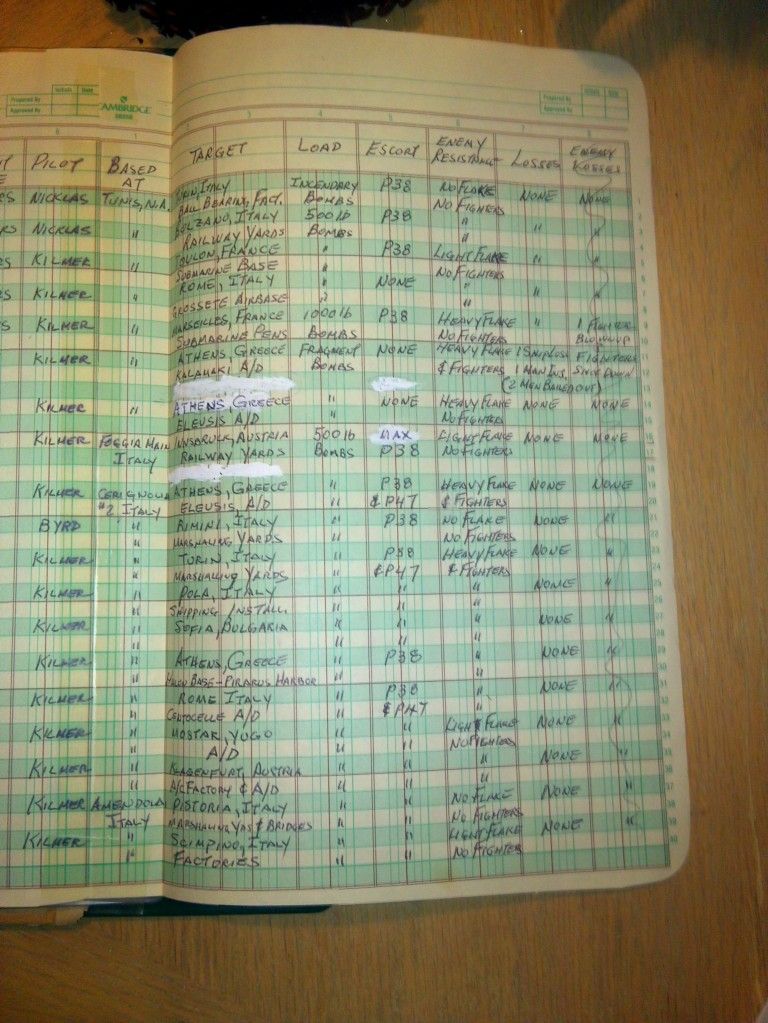 Initials Date
Prepared By
Approved By
AMBRIDGE
Initials Date
Prepared By
Approved By
PILOT BASED AT TARGET LOAD ESCORT ENEMY RESISTANCE LOSSES ENEMY LOSSES
NICKLAS TUNIS, N.A. TURIN, ITALY INCENDARY P38 NO FLAKE NONE NONE
BALL BEARIN, FACT. BOMBS NO FIGHTERS
NICKLAS " BOLZANO, ITALY 500 lb P38 " "
RAILWAY YARDS BOMBS "
KILMER " TOULON, FRANCE " P38 LIGHT FLAKE "
SUBMARINE BASE " NO FIGHTERS
KILMER " ROME, ITALY " NONE " "
GROSSETE AIRBASE " "
KILMER " MARSEILLES, FRANCE 1000 lb P38 HEAVY FLAKE " 1 FIGHTER
SUBMARINE PENS BOMBS NO FIGHTERS BLOWN UP
KILMER " ATHENS, GREECE FRAGMENT NONE HEAVY FLAKE 1 SHIP LOSS FIGHTERS
KALAMAKI A/D BOMBS & FIGHTERS 1 MAN INJ. SHOT DOWN
(2 MEN BAILED OUT)
KILMER " ATHENS, GREECE " NONE HEAVY FLAKE NONE NONE
ELEUSIS A/D " NO FIGHTERS
KILMER FOGGIA MAIN INNSBRUCK, AUSTRIA 500 lb MAX LIGHT FLAKE NONE NONE
ITALY RAILWAY YARDS BOMBS P38 NO FIGHTERS
KILMER CERIGNOLA ATHENS, GREECE " P38 HEAVY FLAKE NONE NONE
#2 ITALY ELEUSIS, A/D " & P47 & FIGHTERS
BYRD " RIMINI, ITALY " P38 NO FLAKE NONE "
" MARSHALING YARDS " NO FIGHTERS
KILMER " TURIN, ITALY " P38 HEAVY FLAKE NONE "
" MARSHALLING YARDS " & P47 & FIGHTERS
KILMER " POLA, ITALY " " " NONE "
" SHIPPING INSTALL. " " "
KILMER " SOFIA, BULGARIA " " " NONE "
" " " " "
KILMER " ATHENS, GREECE " P38 " NONE "
" BASE - PIRAEUS HARBOR " "
KILMER " ROME ITALY " P38 " NONE "
" CENTOCELLE A/D " & P47 "
KILMER " MOSTAR, YUGO " " LIGHT FLAKE NONE "
" A/D " " NO FIGHTERS
KILMER " KLAGENFURT, AUSTRIA " " " NONE "
" A/C FACTORY & A/D " " "
KILMER AMENDOLA PISTORIA, ITALY " " NO FLAKE NONE "
ITALY MARSHALING YDS & BRIDGES " " NO FIGHTERS
KILMER " SCIMPINO, ITALY " " LIGHT FLAKE NONE "
" FACTORIES " " NO FIGHTERS